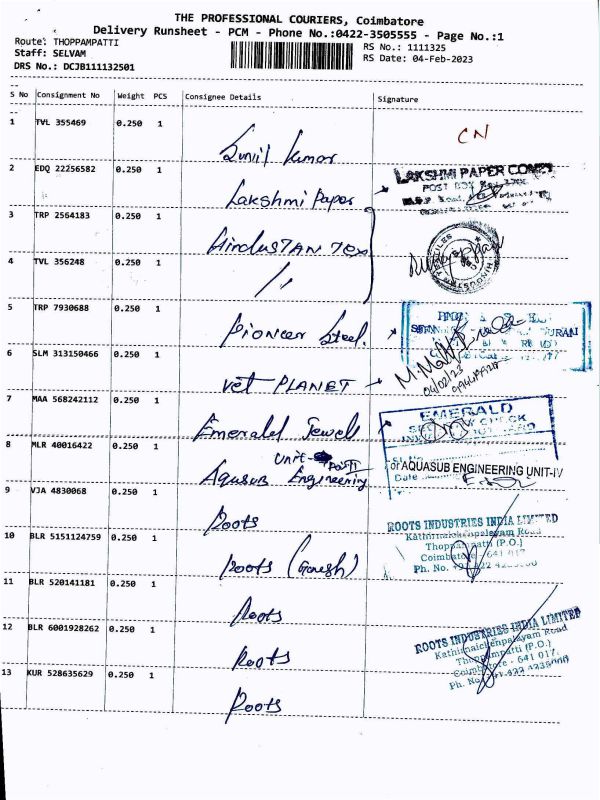 THE PROFESSIONAL COURIERS, Coimbatore
Delivery Runsheet - PCM - Phone No.:0422-3505555 - Page No.:1
Route: THOPPAMPATTI
Staff: SELVAM
DRS No.: DCJB111132501
RS No.: 1111325
RS Date: 04-Feb-2023
S No Consignment No Weight PCS Consignee Details Signature
1 TVL 355469 0.250 1 Sunil Kumar CN
2 EDQ 22256582 0.250 1 Lakshmi Paper
LAKSHMI PAPER
POST BOX
3 TRP 2564183 0.250 1 HindusTAN Tex
4 TVL 356248 0.250 1 //
5 TRP 7930688 0.250 1 Pioneer Steel.
6 SLM 313150466 0.250 1 vet PLANET
04/02/23
7 MAA 568242112 0.250 1 Emerald Jewels
EMERALD
8 MLR 40016422 0.250 1 Aquasub Engineering
Unit-
Date
for AQUASUB ENGINEERING UNIT-IV
9 VJA 4830068 0.250 1 Roots
10 BLR 5151124759 0.250 1 Roots (Ganesh)
ROOTS INDUSTRIES INDIA LIMITED
Kathirnaickenpalayam Road
Thoppampatti (P.O.)
Coimbatore - 641 017
Ph. No.
11 BLR 520141181 0.250 1 Roots
12 BLR 6001928262 0.250 1 Roots
ROOTS INDUSTRIES INDIA LIMITED
Kathirnaickenpalayam Road
Thoppampatti (P.O.)
Coimbatore - 641 017.
Ph. No.
13 KUR 528635629 0.250 1 Roots